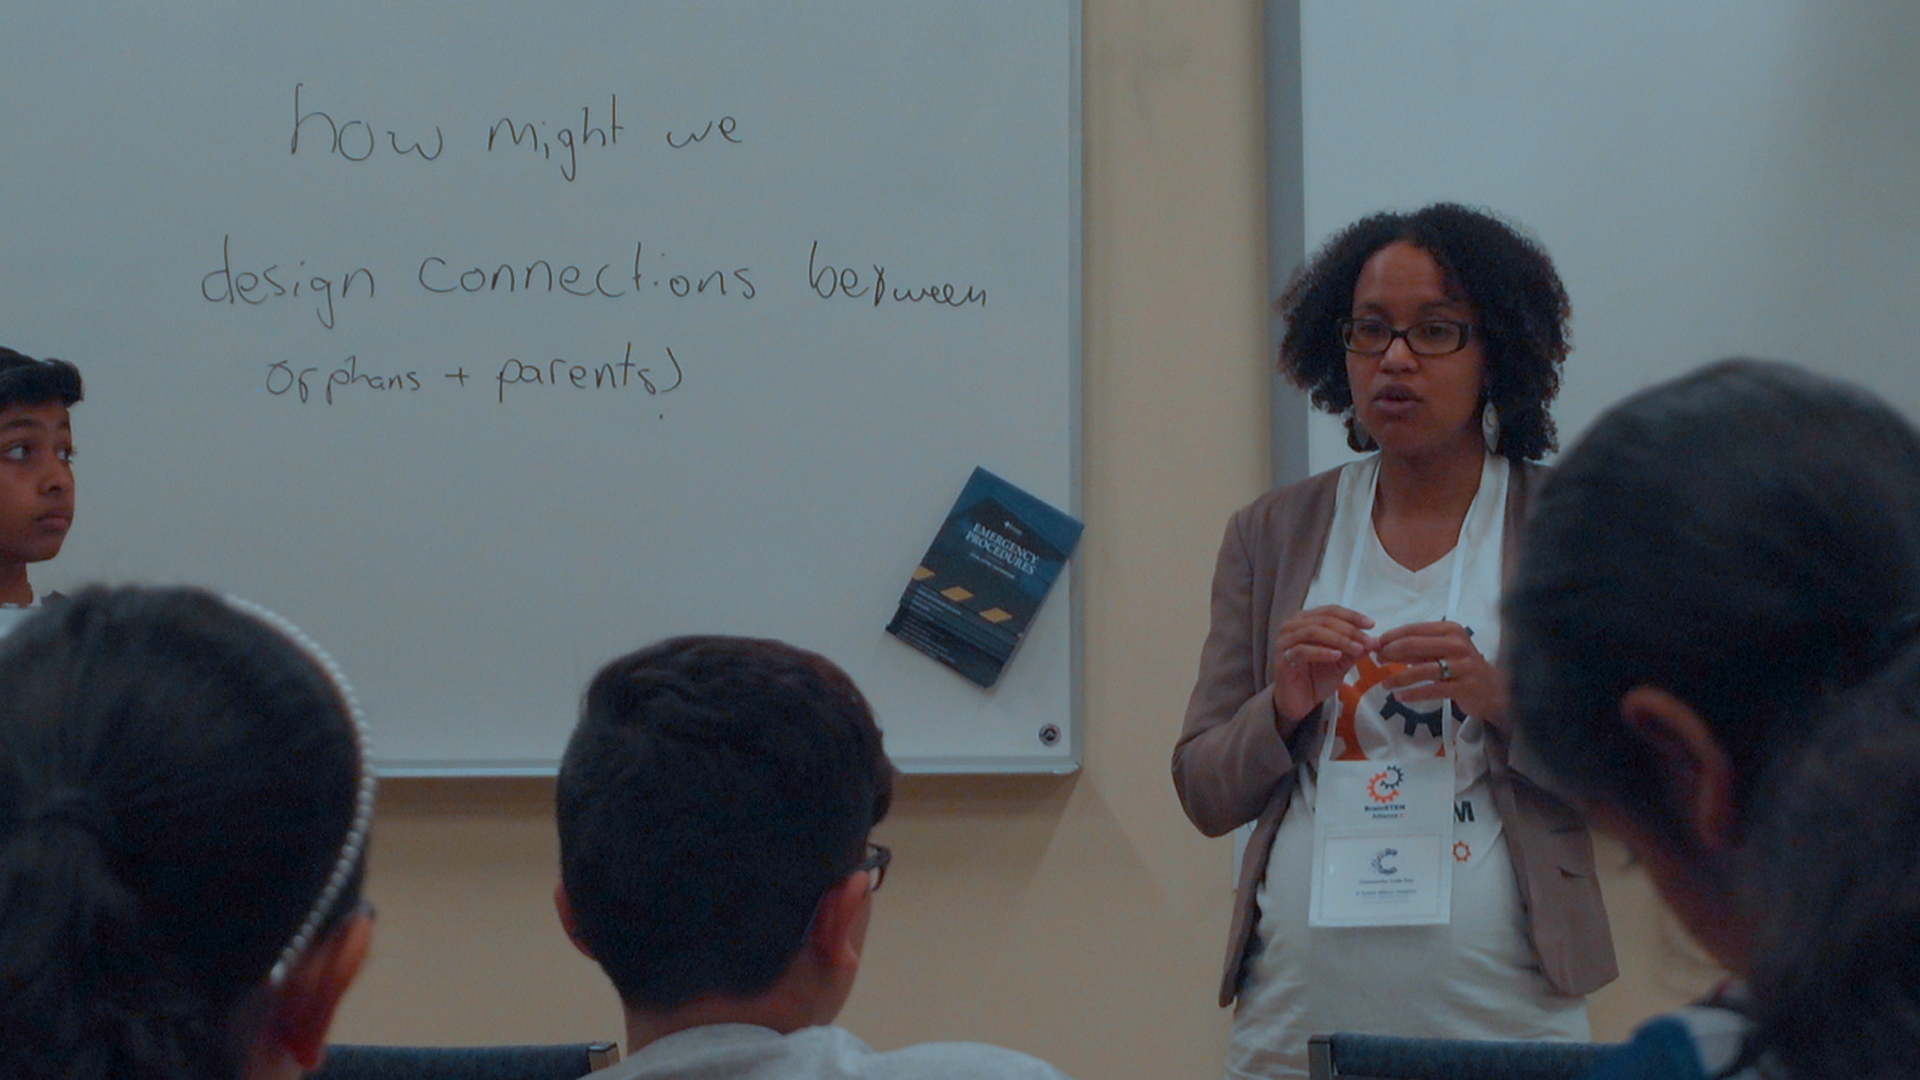 how might we
design connections between
orphans + parents)
EMERGENCY
PROCEDURES
BrainSTEM
Alliance
M